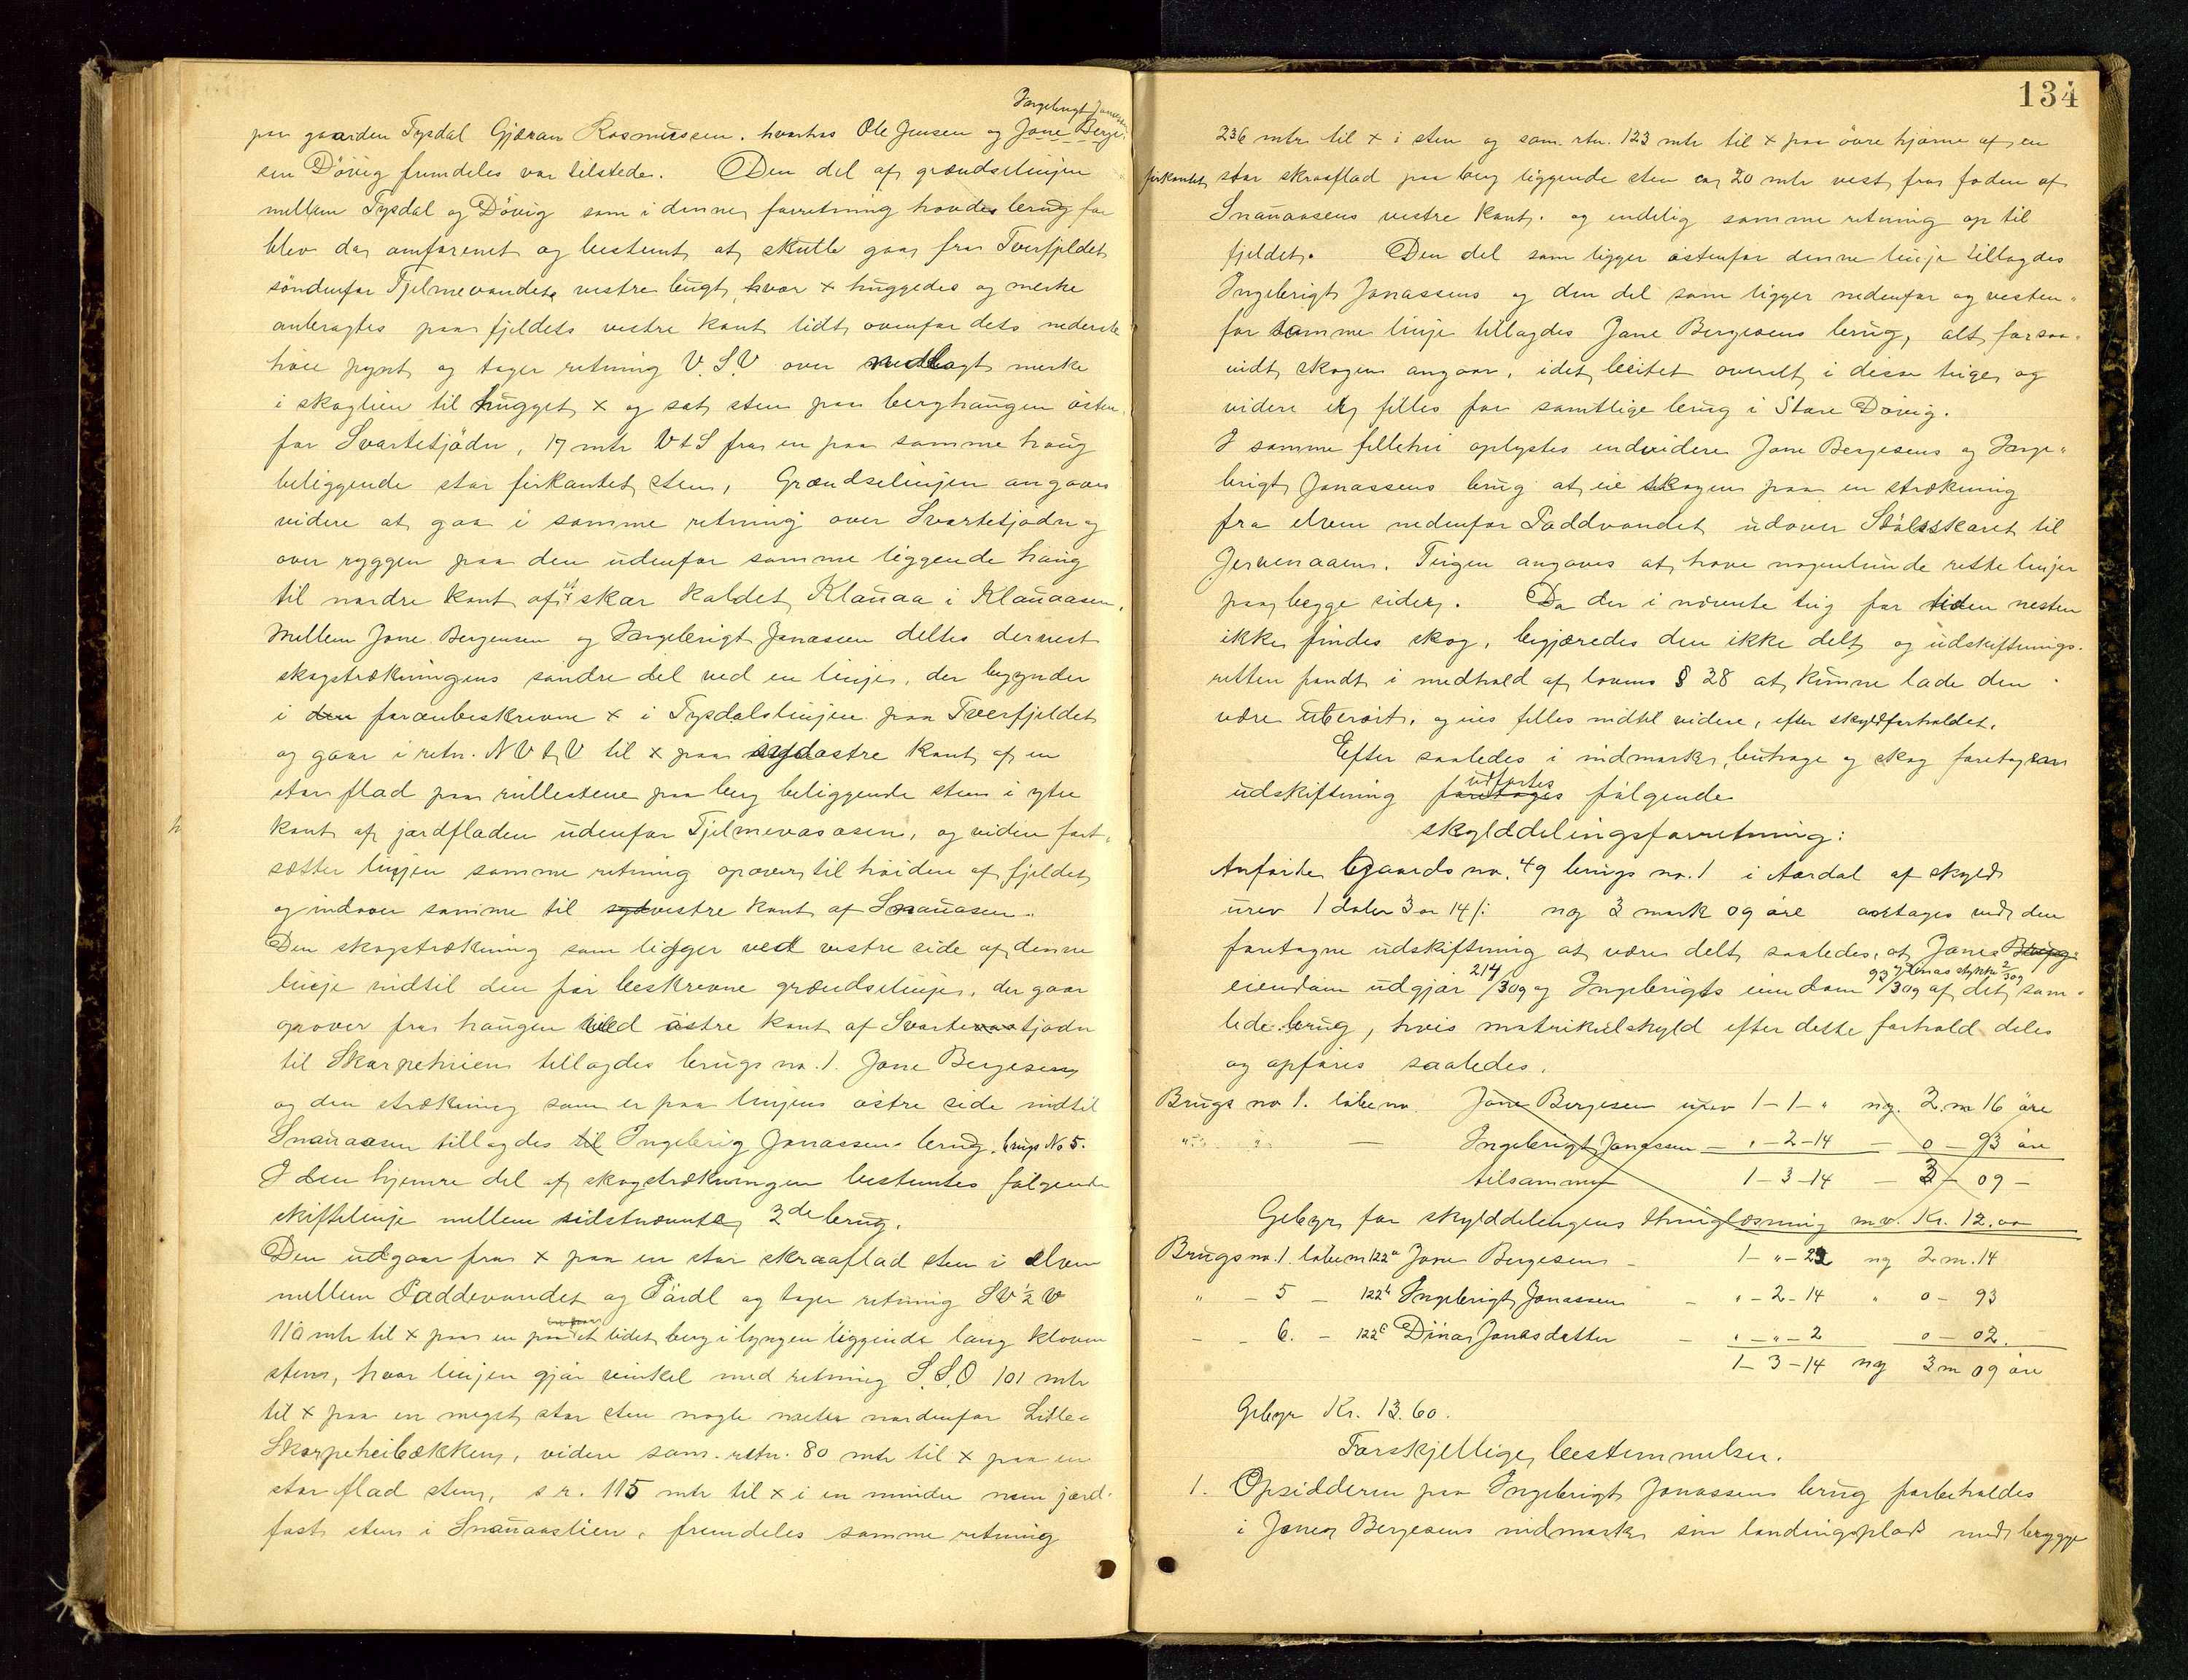 Ingebrigt Jonassen
paa gaarden Tysdal Gjæran Rasmussen. hvorhos Ole Jensen og Jone Berge-
sen Døvig fremdeles var tilstede. Den del af grændselinjen
mellem Tysdal og Døvig som i denne forretning havde brug for
blev da omforenet og bestemt at skulle gaa fra Tverfjeldet
søndenfor Tjelmevandets vestre bugt, hvor x huggedes og merke
anbragtes paa fjeldets vestre kant lidt ovenfor dets nederste
høie pynt og tager retning V.S.V over nedlagt merke
i skoglien til hugget x og sat sten paa berghaugen østen-
for Svartetjødn, 17 mtr VtS fra en paa samme haug
beliggende stor firkantet sten, Grændselinjen angaves
videre at gaa i samme retning over Svartetjødn og
over ryggen paa den udenfor samme liggende haug
til nordre kant af et skar kaldet Klauaa i Klauaasen.
Mellem Jone Bergesen og Ingebrigt Jonassen deltes dernest
skogstrækningens søndre del ved en linje, der begynder
i den foranbeskrevne x i Tysdalslinjen paa Tverfjeldet
og gaar i retn. NVtV til x paa sydøstre kant af en
stor flad paa rullestene paa berg beliggende sten i ytre
kant af jordfladen udenfor Tjelmevasosen, og videre fort-
sætter linjen samme retning opover til høiden af fjeldet
og indover samme til sydvestre kant af Snauaasen.
Den skogstrækning som ligger ved vestre side af denne
linje indtil den før beskrevne grændselinje, der gaar
opover fra haugen ved østre kant af Svartevastjødn
til Skarpeheien tillagdes brugs no. 1. Jone Bergesens
og den strækning som er paa linjens østre side indtil
Snauaasen tillagdes til Ingebrig Jonassens brug, brugs No 5.
I den hjemre del af skogstrækningen bestemtes følgende
skiftelinje mellem sidstnævnte 2de brug.
Den udgaar fra x paa en stor skraaflad sten i elven
mellem Paddevandet og og tager retning SV½V
110 mtr til x paa en paa et lidet berg i lyngen liggende lang kloven
sten, hvor linjen gjør vinkel med retning S.S.O 101 mtr
til x paa en meget stor sten nogle meter nordenfor Litle-
Skarpeheibækken, videre sam. retn. 80 mtr til x paa en
stor flad sten, s r. 115 mtr til x i en mindre men jord-
fast sten i Snauaaslien, fremdeles samme retning
134
236 mtr til x i sten og sam. rtn. 123 mtr til x paa øvre hjørne af en
firkantet stor skraaflad paa berg liggende sten ca 20 mtr vest fra foden af
Snauaasens vestre kant. og endelig samme retning op til
fjeldet. Den del som ligger østenfor denne linje tillagdes
Ingebrigt Jonassens og den del som ligger nedenfor og vesten-
for samme linje tillagdes Jone Bergesens brug, alt forsaa-
vidt skogen angaar, idet beitet overalt i disse teiger og
videre er felles for samtlige brug i Store Døvig.
I samme felleshei oplystes endvidere Jone Bergesens og Inge-
brigt Jonassens brug at eie skogen paa en strækning
fra elven nedenfor Paddvandet udover Stølsskaret til
Jervenaaen. Teigen angaves at have nogenlunde rette linjer
paa begge sider. Da der i nævnte teig for tiden nesten
ikke findes skog, begjæredes den ikke delt og udskiftnings-
retten fandt i medhold af lovens § 28 at kunne lade den
være uberørt, og eies felles indtil videre, efter skyldforholdet.
Efter saaledes i indmark, budrage og skog foretagen
udskiftning foretoges udførtes følgende
skylddelingsforretning:
Anførte Gaards no. 49 brugs no. 1 i Aardal af skyld
urev 1 daler 3 or 14 s: ny 3 mark 09 øre antages ved den
foretagne udskiftning at være delt saaledes, at Jones Brug
eiendom udgjør 214/309 og Ingebrigts eiendom 93/309 og Dinas stykke 2/309 af det sam-
lede brug, hvis matrikulskyld efter dette forhold deles
og opføres saaledes.
Brugs no 1. løbeno. Jone Bergesen urev 1-1-" ny. 2 m 16 øre
" 2 — Ingebrigt Jonassen — " -2-14 — 0 — 93 øre
tilsammen 1-3-14 — 3 - 09 -
Gebyr for skylddelingens thinglæsning m.v. Kr. 12.00
Brugs no. 1. løbe no 122a Jone Bergesen - 1-"-22 ny 2 m. 14
" - 5 - 122b Ingebrigt Jonassen - "-2-14 " 0 - 93
- - 6. - 122c Dina Jonasdatter - "-"-2 0 - 02.
1-3-14 ny 3 m 09 øre
Gebyr Kr. 13.60.
Forskjellige bestemmelser.
1. Opsidderen paa Ingebrigt Jonassens brug forbeholdes
i Jone Bergesens indmark sin landingsplads med brygge